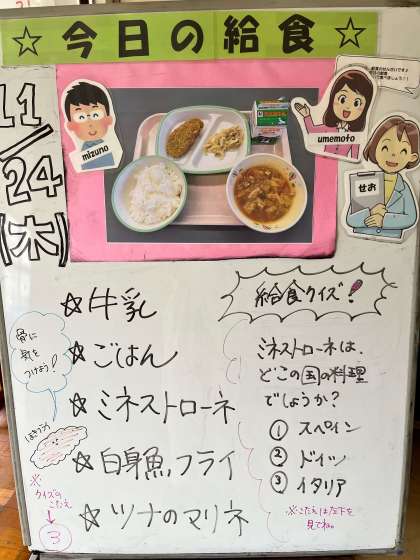 ☆今日の給食☆
11/24(木)
mizuno
umemoto
せお
☆牛乳
☆ごはん
☆ミネストローネ
☆白身魚フライ
☆ツナのマリネ
骨に
気を
つけよう!
※
クイズの
こたえ
↓
③
給食クイズ!
ミネストローネは、
どこの国の料理
でしょうか?
① スペイン
② ドイツ
③ イタリア
※こたえは左下を
見てね。